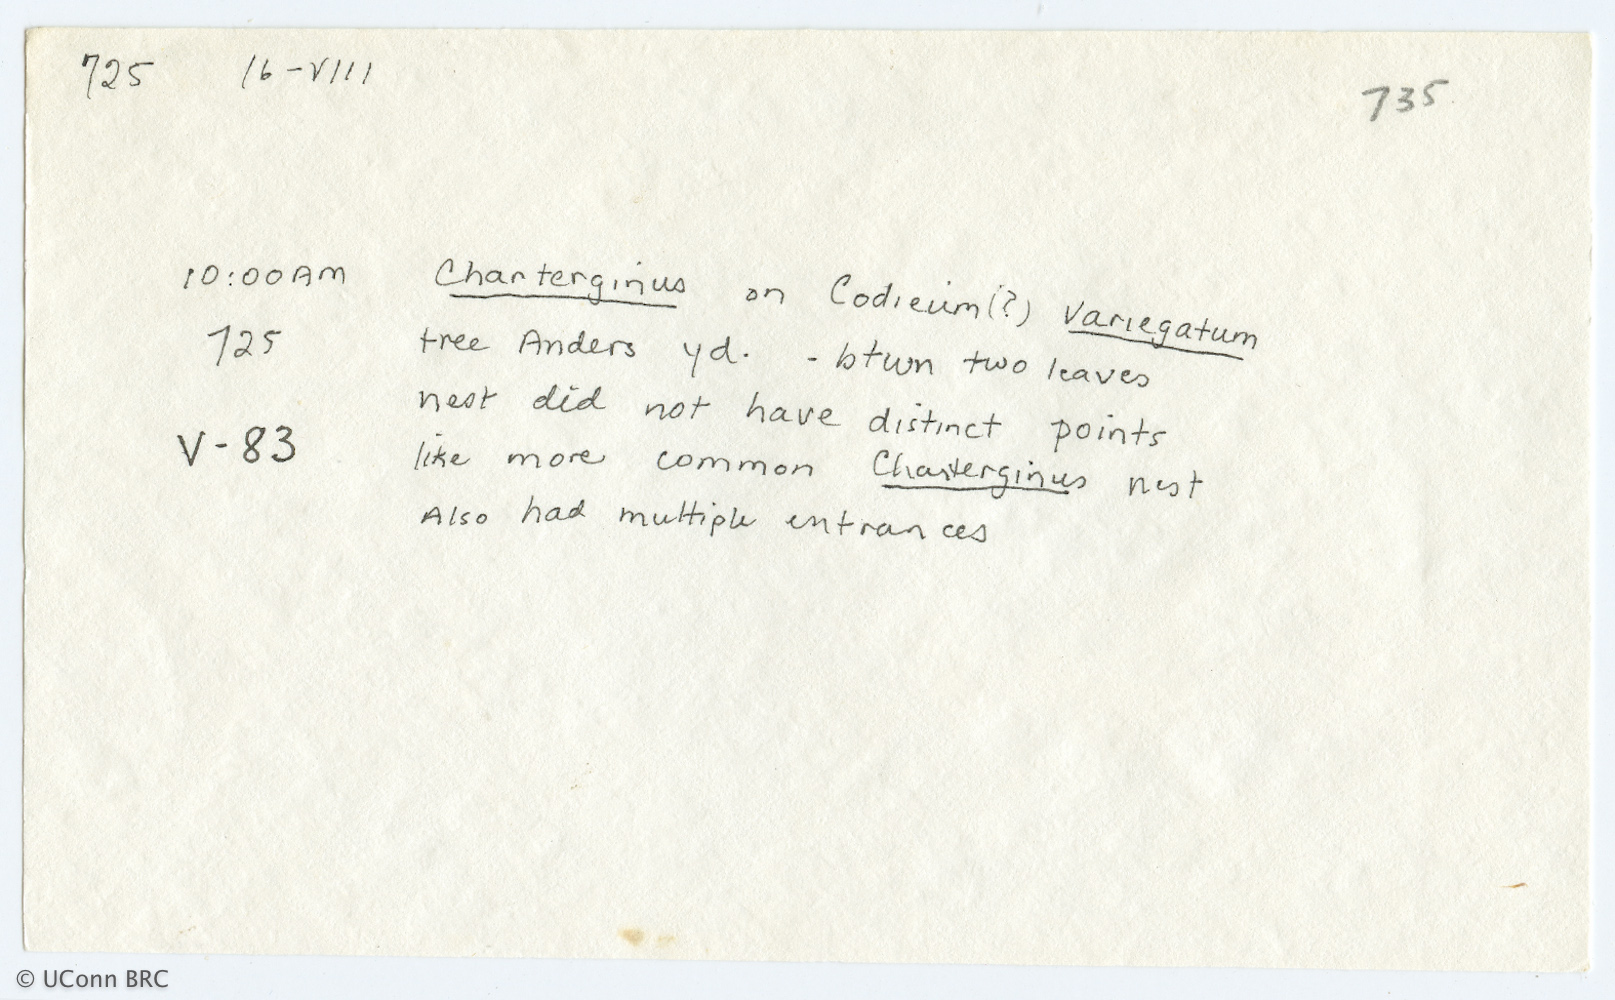 725 16-VIII
735
10:00AM Charterginus on Codieium(?) variegatum
725 tree Anders yd. - btwn two leaves
nest did not have distinct points
V-83 like more common Charterginus nest
Also had multiple entrances
© UConn BRC